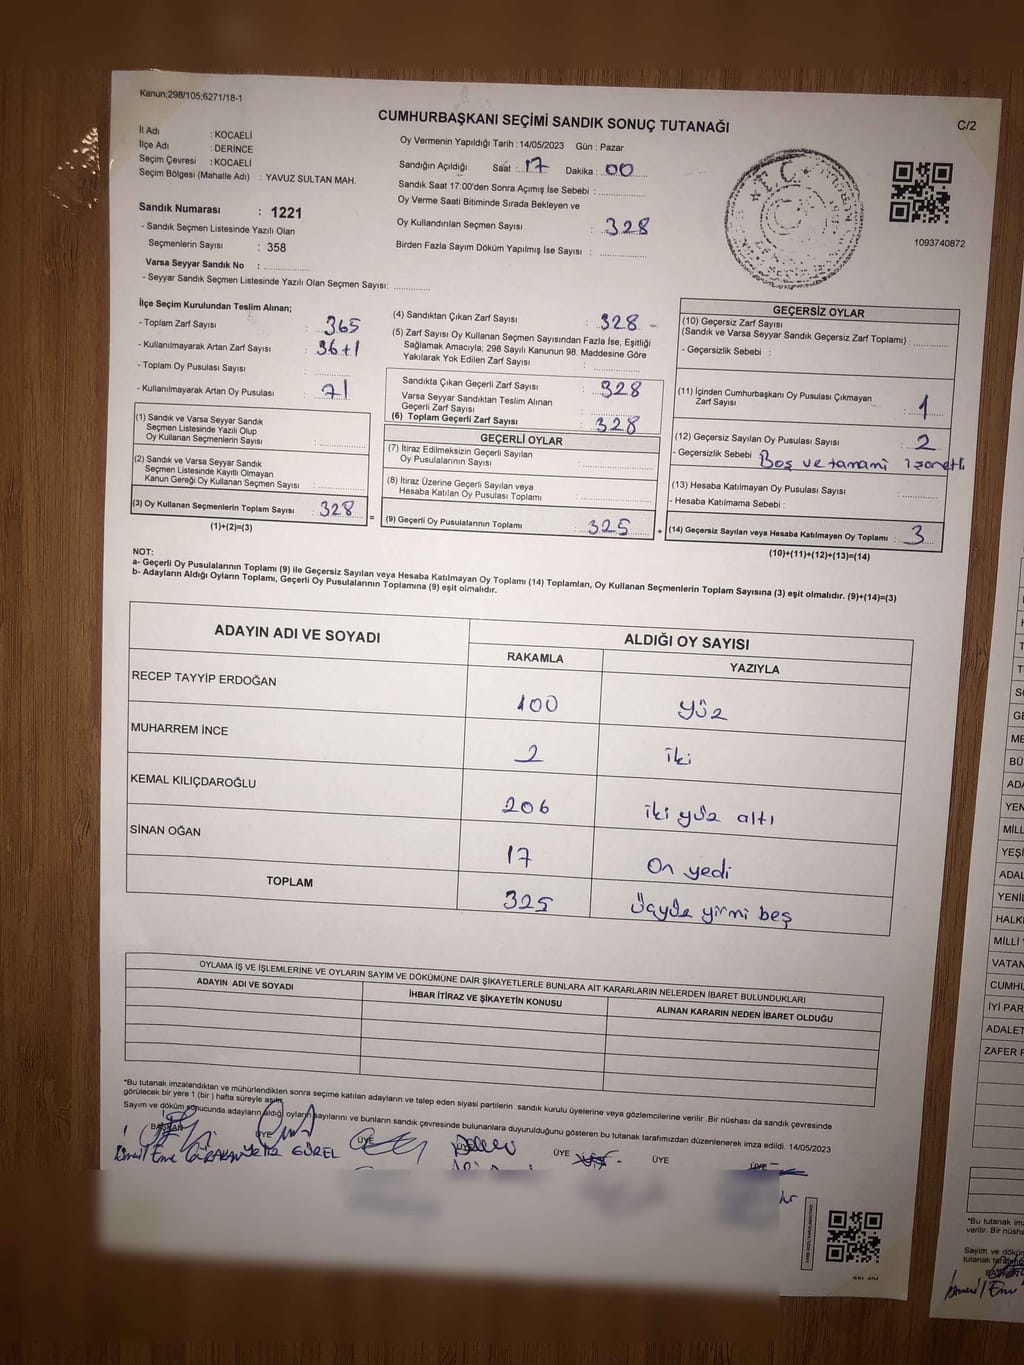 Kanun;298/105;6271/18-1
CUMHURBAŞKANI SEÇİMİ SANDIK SONUÇ TUTANAĞI
C/2
İl Adı : KOCAELİ
İlçe Adı : DERİNCE
Seçim Çevresi : KOCAELİ
Seçim Bölgesi (Mahalle Adı) : YAVUZ SULTAN MAH.
Oy Vermenin Yapıldığı Tarih :14/05/2023 Gün : Pazar
Sandığın Açıldığı Saat :17 Dakika :00
Sandık Saat 17:00'den Sonra Açımış İse Sebebi :
Oy Verme Saati Bitiminde Sırada Bekleyen ve
Oy Kullandırılan Seçmen Sayısı : 328
Birden Fazla Sayım Döküm Yapılmış İse Sayısı :
T.C.
1093740872
Sandık Numarası : 1221
- Sandık Seçmen Listesinde Yazılı Olan
Seçmenlerin Sayısı : 358
Varsa Seyyar Sandık No :
- Seyyar Sandık Seçmen Listesinde Yazılı Olan Seçmen Sayısı:
İlçe Seçim Kurulundan Teslim Alınan;
- Toplam Zarf Sayısı : 365
- Kullanılmayarak Artan Zarf Sayısı : 36+1
- Toplam Oy Pusulası Sayısı :
- Kullanılmayarak Artan Oy Pusulası : 71
(1) Sandık ve Varsa Seyyar Sandık
Seçmen Listesinde Yazılı Olup
Oy Kullanan Seçmenlerin Sayısı :
(2) Sandık ve Varsa Seyyar Sandık
Seçmen Listesinde Kayıtlı Olmayan
Kanun Gereği Oy Kullanan Seçmen Sayısı :
(3) Oy Kullanan Seçmenlerin Toplam Sayısı : 328
(1)+(2)=(3)
(4) Sandıktan Çıkan Zarf Sayısı : 328
(5) Zarf Sayısı Oy Kullanan Seçmen Sayısından Fazla İse, Eşitliği
Sağlamak Amacıyla; 298 Sayılı Kanunun 98. Maddesine Göre
Yakılarak Yok Edilen Zarf Sayısı :
Sandıkta Çıkan Geçerli Zarf Sayısı : 328
Varsa Seyyar Sandıktan Teslim Alınan
Geçerli Zarf Sayısı :
(6) Toplam Geçerli Zarf Sayısı : 328
GEÇERLİ OYLAR
(7) İtiraz Edilmeksizin Geçerli Sayılan
Oy Pusulalarının Sayısı :
(8) İtiraz Üzerine Geçerli Sayılan veya
Hesaba Katılan Oy Pusulası Toplamı :
= (9) Geçerli Oy Pusulalarının Toplamı : 325
GEÇERSİZ OYLAR
(10) Geçersiz Zarf Sayısı
(Sandık ve Varsa Seyyar Sandık Geçersiz Zarf Toplamı) :
- Geçersizlik Sebebi :
(11) İçinden Cumhurbaşkanı Oy Pusulası Çıkmayan
Zarf Sayısı : 1
(12) Geçersiz Sayılan Oy Pusulası Sayısı : 2
- Geçersizlik Sebebi Boş ve tamamı işaretli
(13) Hesaba Katılmayan Oy Pusulası Sayısı :
- Hesaba Katılmama Sebebi :
+ (14) Geçersiz Sayılan veya Hesaba Katılmayan Oy Toplamı : 3
(10)+(11)+(12)+(13)=(14)
NOT:
a- Geçerli Oy Pusulalarının Toplamı (9) ile Geçersiz Sayılan veya Hesaba Katılmayan Oy Toplamı (14) Toplamları, Oy Kullanan Seçmenlerin Toplam Sayısına (3) eşit olmalıdır. (9)+(14)=(3)
b- Adayların Aldığı Oyların Toplamı, Geçerli Oy Pusulalarının Toplamına (9) eşit olmalıdır.
ADAYIN ADI VE SOYADI ALDIĞI OY SAYISI
RAKAMLA YAZIYLA
RECEP TAYYİP ERDOĞAN 100 yüz
MUHARREM İNCE 2 iki
KEMAL KILIÇDAROĞLU 206 iki yüz altı
SİNAN OĞAN 17 On yedi
TOPLAM 325 Üçyüz yirmi beş
OYLAMA İŞ VE İŞLEMLERİNE VE OYLARIN SAYIM VE DÖKÜMÜNE DAİR ŞİKAYETLERLE BUNLARA AİT KARARLARIN NELERDEN İBARET BULUNDUKLARI
ADAYIN ADI VE SOYADI İHBAR İTİRAZ VE ŞİKAYETİN KONUSU ALINAN KARARIN NEDEN İBARET OLDUĞU
*Bu tutanak imzalandıktan ve mühürlendikten sonra seçime katılan adayların ve talep eden siyasi partilerin sandık kurulu üyelerine veya gözlemcilerine verilir .Bir nüshası da sandık çevresinde
görülecek bir yere 1 (bir ) hafta süreyle asılır.
Sayım ve döküm sonucunda adayların aldığı oyların sayılarını ve bunların sandık çevresinde bulunanlara duyurulduğunu gösteren bu tutanak tarafımızdan düzenlenerek imza edildi. 14/05/2023
BAŞKAN ÜYE ÜYE ÜYE ÜYE ÜYE ÜYE
GÜREL
T
T
GE
ME
BÜ
ADA
YEN
MİLL
YEŞİ
ADAL
YENİL
HALK
MİLLİ
VATAN
CUMHU
İYİ PAR
ADALET
ZAFER P
*Bu tutanak imz
verilir. Bir nüsha
Sayım ve dökü